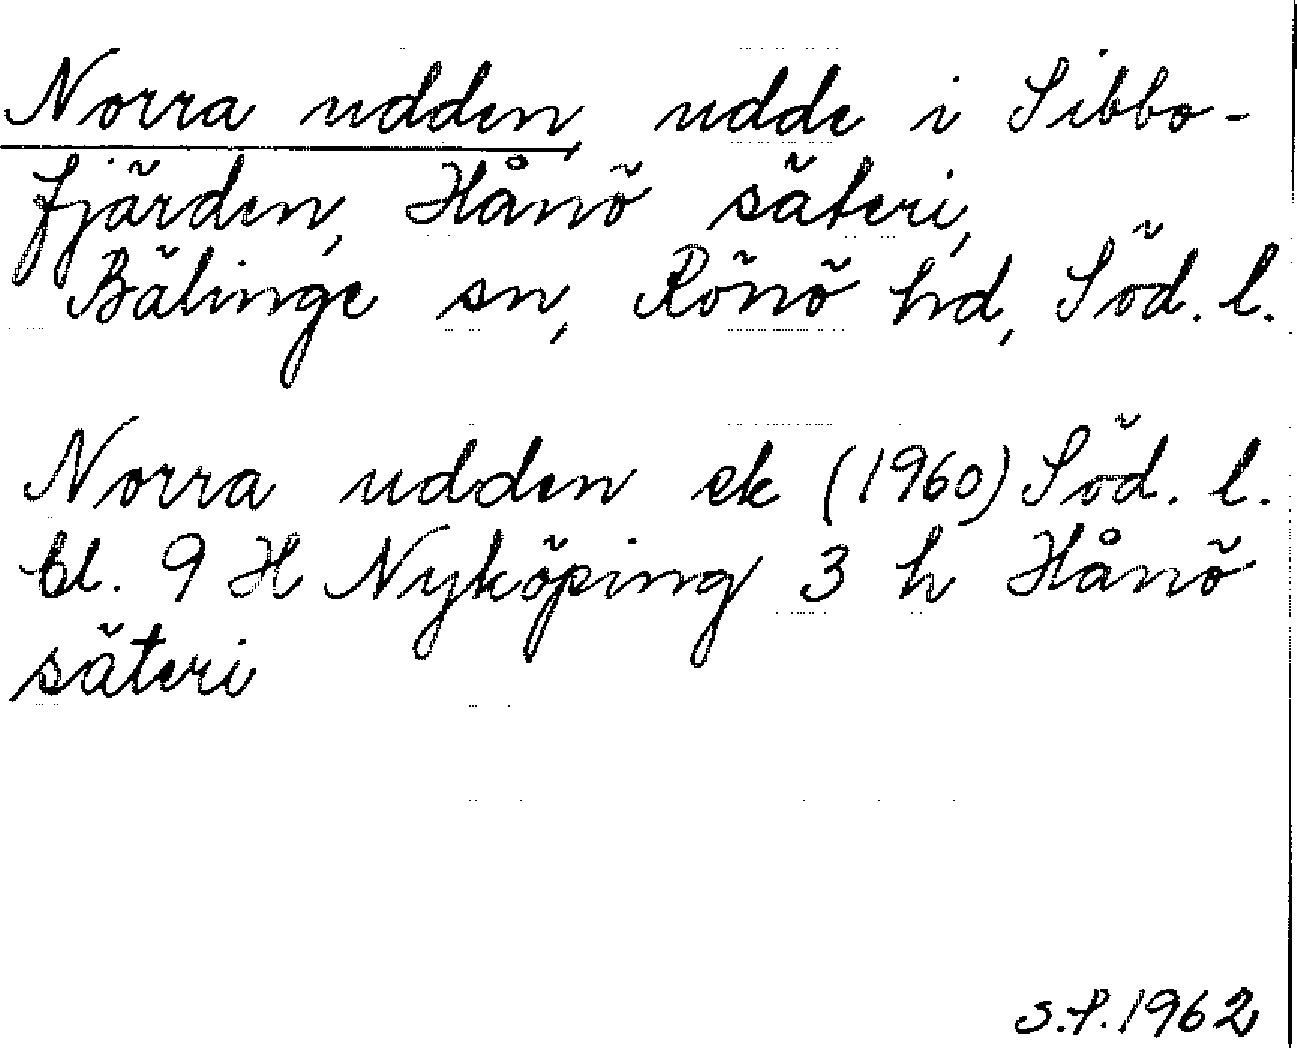 Norra udden, udde i Sibbo-
fjärden, Hånö säteri,
Bälinge sn, Rönö hd, Söd. l.
Norra udden ek (1960) Söd. l.
bl. 9 H Nyköping 3 h Hånö
säteri
S.P. 1962